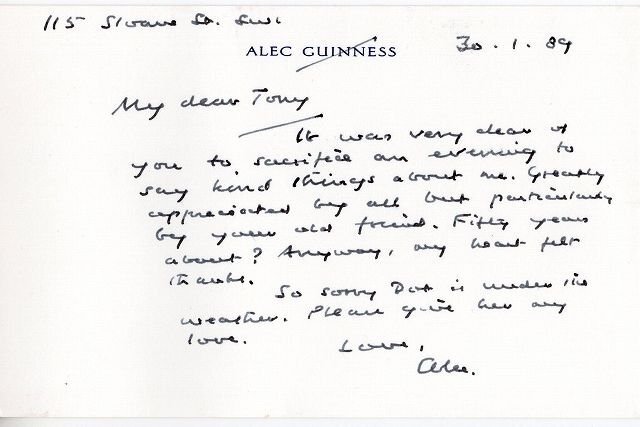 115 Sloane St. SW1
ALEC GUINNESS
30.1.89
My dear Tony
It was very dear of
you to sacrifice an evening to
say kind things about me. Greatly
appreciated by all but particularly
by your old friend. Fifty years
about? Anyway, my heart felt
thanks.
So sorry Dot is under the
weather. Please give her my
love.
Love,
Alec.